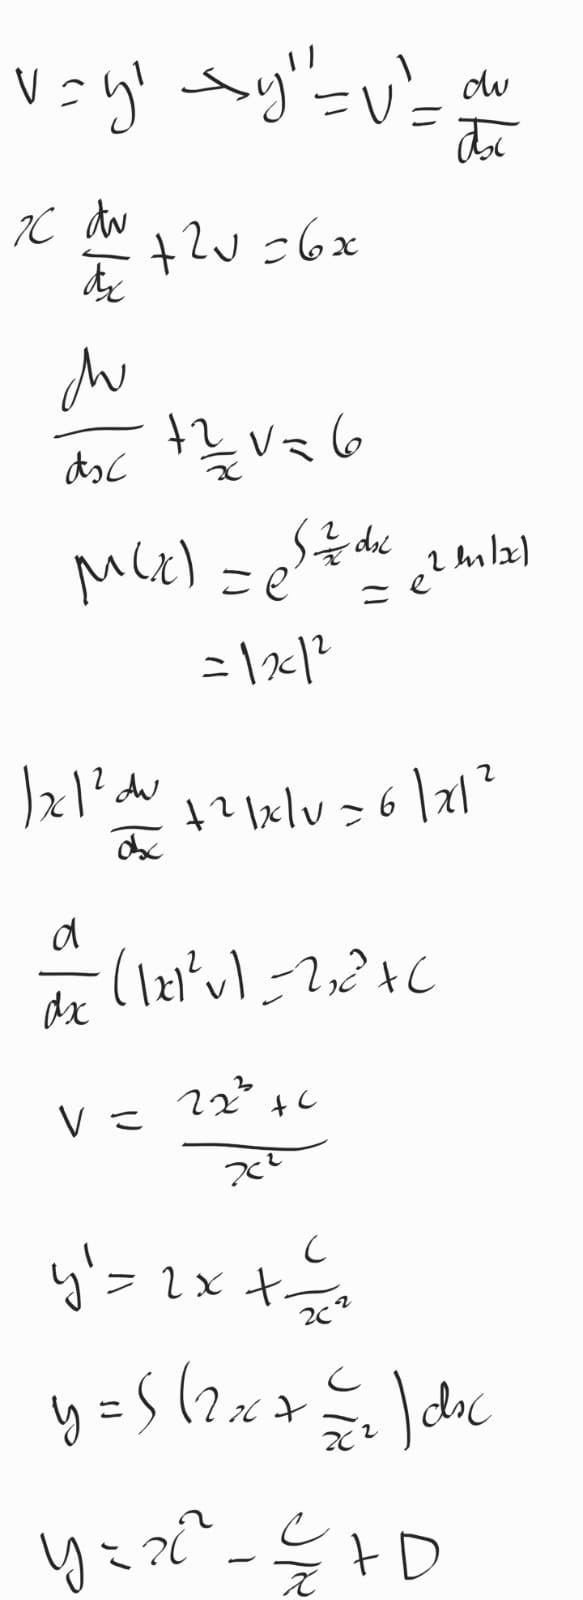 v = y' → y'' = v' = dv/dx
x dv/dx + 2v = 6x
dv/dx + 2/x v = 6
μ(x) = e^{∫ 2/x dx} = e^{2 ln|x|}
= |x|²
|x|² dv/dx + 2|x|v = 6|x|²
d/dx (|x|²v) = 2x³ + C
v = (2x³ + C)/x²
y' = 2x + C/x²
y = ∫(2x + C/x²)dx
y = x² - C/x + D